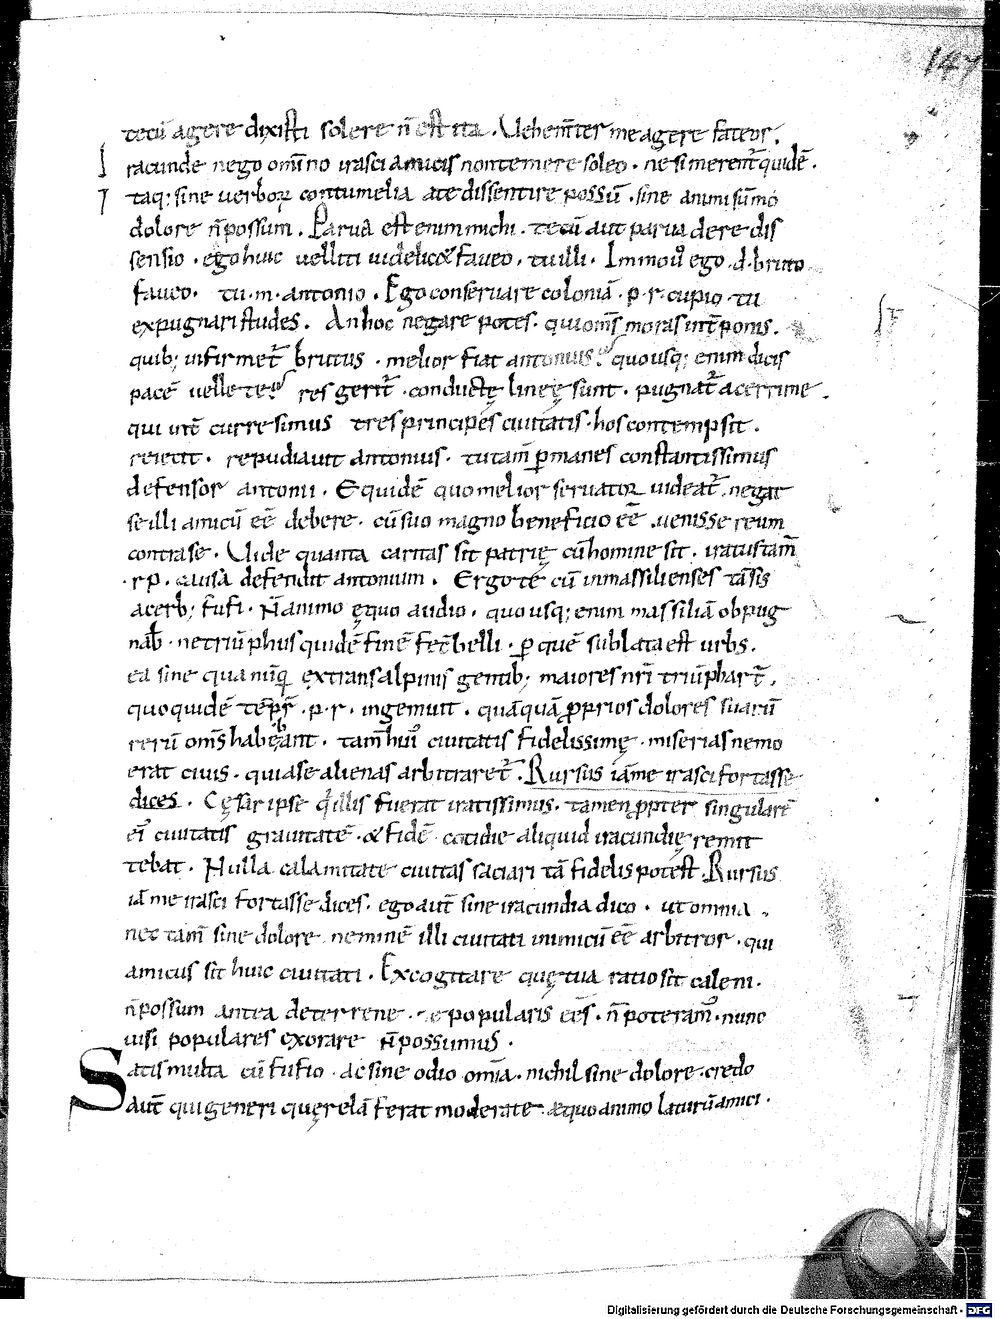 147
tecū agere dixisti solere n̄ est ita . Uehem̄ter me agere fateor .
I racunde nego om̄ino irasci amicis non temere soleo . ne si merent̄ quidē .
I taq; sine uerboꝝ contumelia a te dissentire possū . sine animi sūmo
dolore n̄ possum . Parua est enim michi . tecū aut parua de re dis
sensio . ego huic uelliti uidelic& faueo . tu illi . Immo ů ego .d. bruto
faueo . tu .m. antonio . Ego conseruare coloniā .p.r. cupio . tu
expugnari studes . An hoc negare potes . qui om̄s moras int̄ponis .
quib; infirmet̄ brutus . melior fiat antonius quousq; enim dicis
pacē uelle te res gerit̄ . conductę lineę sunt . pugnat̄ acerrime .
qui int̄ curre simus tres principes ciuitatis . hos contempsit .
reiecit . repudiauit antonius . tu tam̄ ꝑmanes constantissimus
defensor antonii . Equidē quo melior seruatoꝝ uideat̄ . negat
se illi amicū eē debere . cū suo magno beneficio eē . uenisse reum
contra se . Uide quanta caritas sit patrię cū homine sit . iratus tam̄
.r p. causa defendit antonium . Ergo te cū in massilienses tā sis
acerb; fufi . N̄ animo ęquo audio . quousq; enim massiliā obpug
nab̄ . ne triūphus quidē finē fec̄ belli . ꝑ quē sublata est urbs .
ea sine qua nūq̄ ex transalpinis gentib; maiores nr̄i triūphar̄t .
quo quidē tēpr̄ .p.r. ingemuit . quāquā ꝓprios dolores suarū
rerū om̄s habeant . tam̄ hui᷒ ciuitatis fidelissimę . miserias nemo
erat ciuis . qui a se alienas arbitraret̄ . Rursus iā me irasci fortasse
dices . Cęsar ipse qͥ illis fuerat iratissimus . tamen ꝓpter singularē
ei᷒ ciuitatis grauitatē . & fidē cotidie aliquid iracundię remit
tebat . Nulla calamitate ciuitas saciari tā fidelis potest . Rursus
iā me irasci fortasse dices . ego aut̄ sine iracundia dico . ut omnia .
nec tam̄ sine dolore neminē illi ciuitati inimicū eē arbitror . qui
amicus sit huic ciuitati . Excogitare quę tua ratio sit caleni .
n̄ possum antea deterrene . te popularis eēs . n̄ poteram᷒ . nunc
uisi populares exorare n̄ possumus .
S atis multa cū fufio . ac sine odio om̄ia . nichil sine dolore . credo
aut̄ qui generi querelā ferat moderate . æquo animo laturū amici .
Digitalisierung gefördert durch die Deutsche Forschungsgemeinschaft - DFG